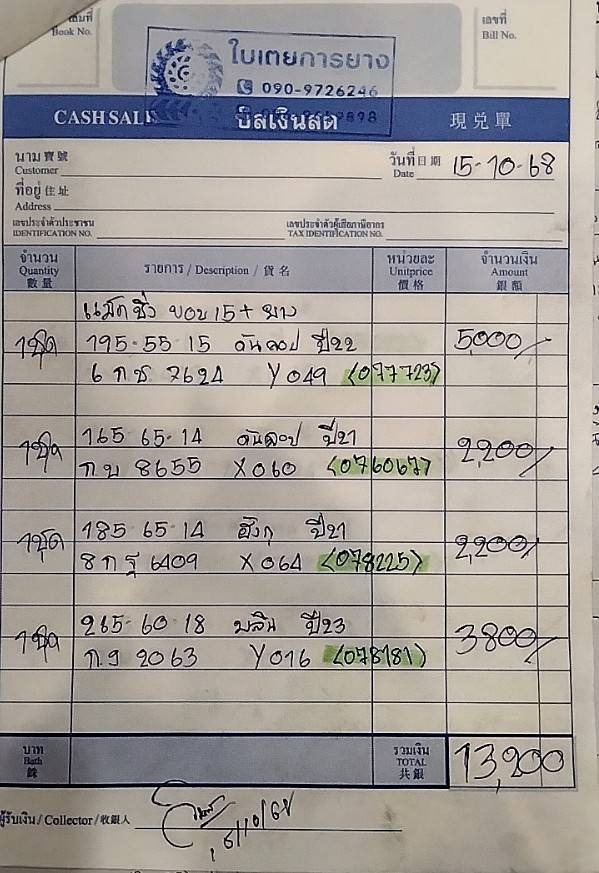 เล่มที่
Book No.
เลขที่
Bill No.
ใบเตยการยาง
090-9726246
CASH SALE บิลเงินสด 現兑單
นาม 寶號
Customer
วันที่ 日期
Date 15-10-68
ที่อยู่ 住址
Address
เลขประจำตัวประชาชน
IDENTIFICATION NO.
เลขประจำตัวผู้เสียภาษีอากร
TAX IDENTIFICATION NO.
จำนวน รายการ / Description / 貨名 หน่วยละ จำนวนเงิน
Quantity Unitprice Amount
數量 價格 銀額
ขอบ 15 + ยาง
1ชุด 195-55-15 ดันลอป ปี22 5,000/-
6 กช 7624 Y049 (077723)
165 65-14 ดันลอป ปี21
1ชุด กบ 8655 X060 (076067) 2,200/-
185 65-14 ปี21
1ชุด 8 กฐ 6409 X064 (078225) 2,200/-
265-60-18 ปี23
1ชุด กว 2063 Y016 (078181) 3,800/-
บาท รวมเงิน
Bath TOTAL 13,200
銖 共銀
ผู้รับเงิน / Collector / 收銀人